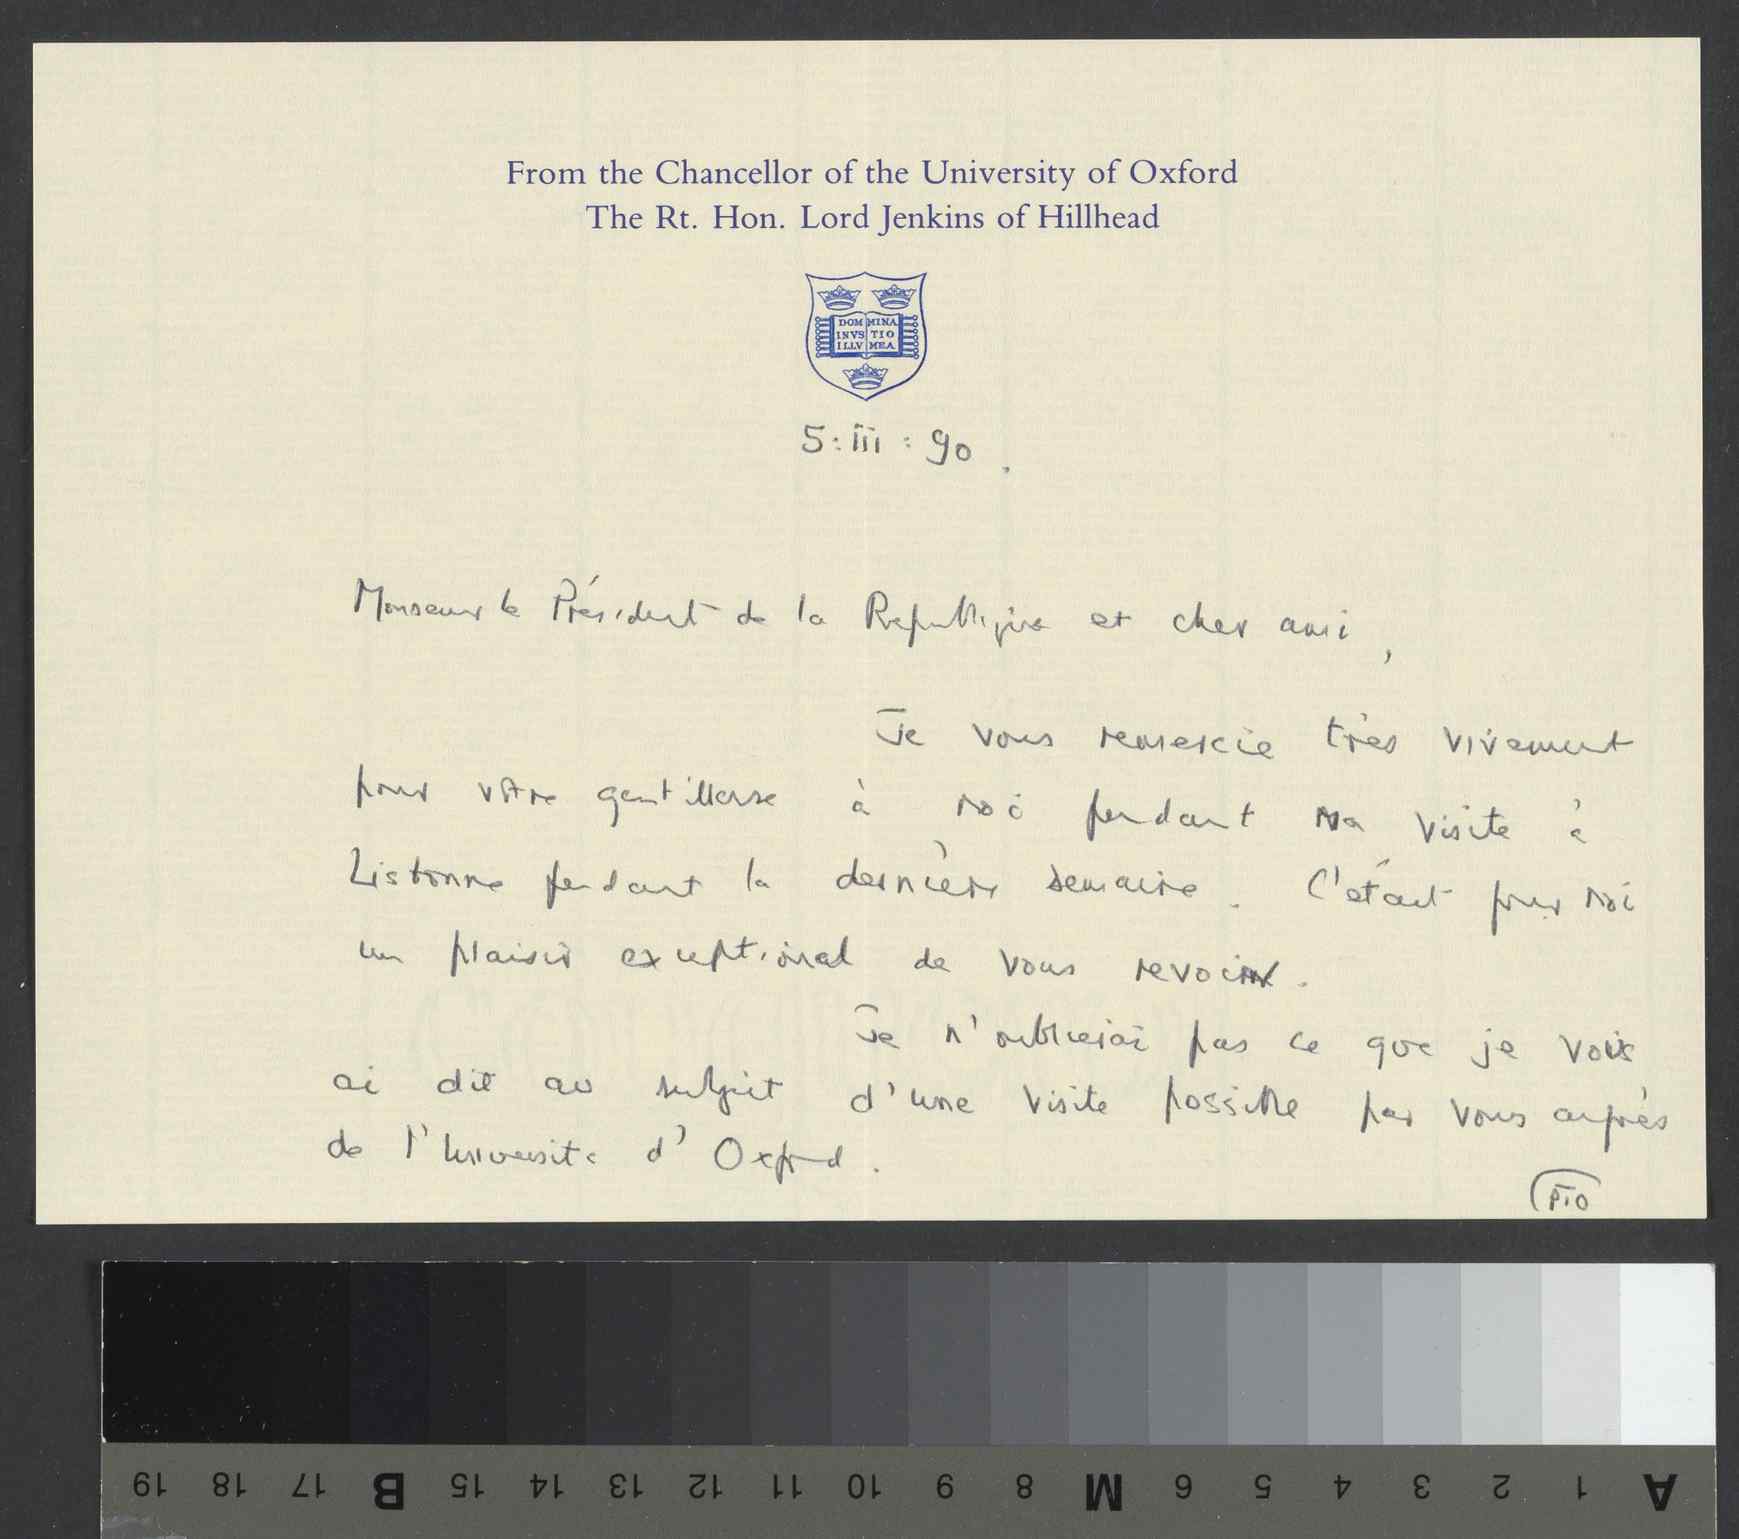 From the Chancellor of the University of Oxford
The Rt. Hon. Lord Jenkins of Hillhead
DOMI MINA
INVS TIO
ILLV MEA
5:iii:90.
Monsieur le Président de la République et cher ami,
Je vous remercie très vivement
pour votre gentillesse à moi pendant ma visite à
Lisbonne pendant la dernière semaine. C'était pour moi
un plaisir exceptional de vous revoir.
Je n'oublierai pas ce que je vous
ai dit au subjuit d'une visite possible par vous auprès
de l'Université d'Oxford.
PTO
19 18 17 B 15 14 13 12 11 10 9 8 M 6 5 4 3 2 1 A